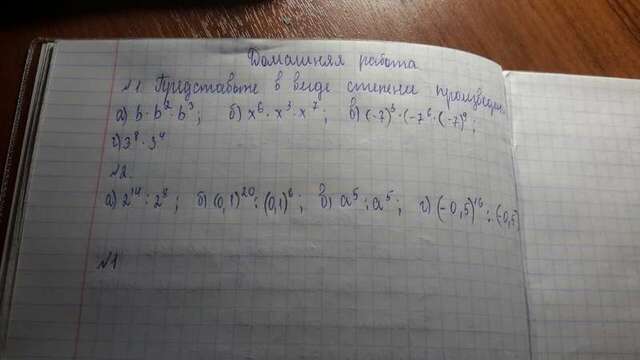 Домашняя работа
№1 Представьте в виде степени произведен
а) b · b² · b³; б) x⁶ · x³ · x⁷; в) (-7)³ · (-7⁶ · (-7)⁹;
г) 3⁸ · 3⁴
№2.
а) 2¹⁴ : 2⁸; б) (0,1)²⁰ : (0,1)⁶; в) a⁵ : a⁵; г) (-0,5)¹⁶ : (-0,5
№1